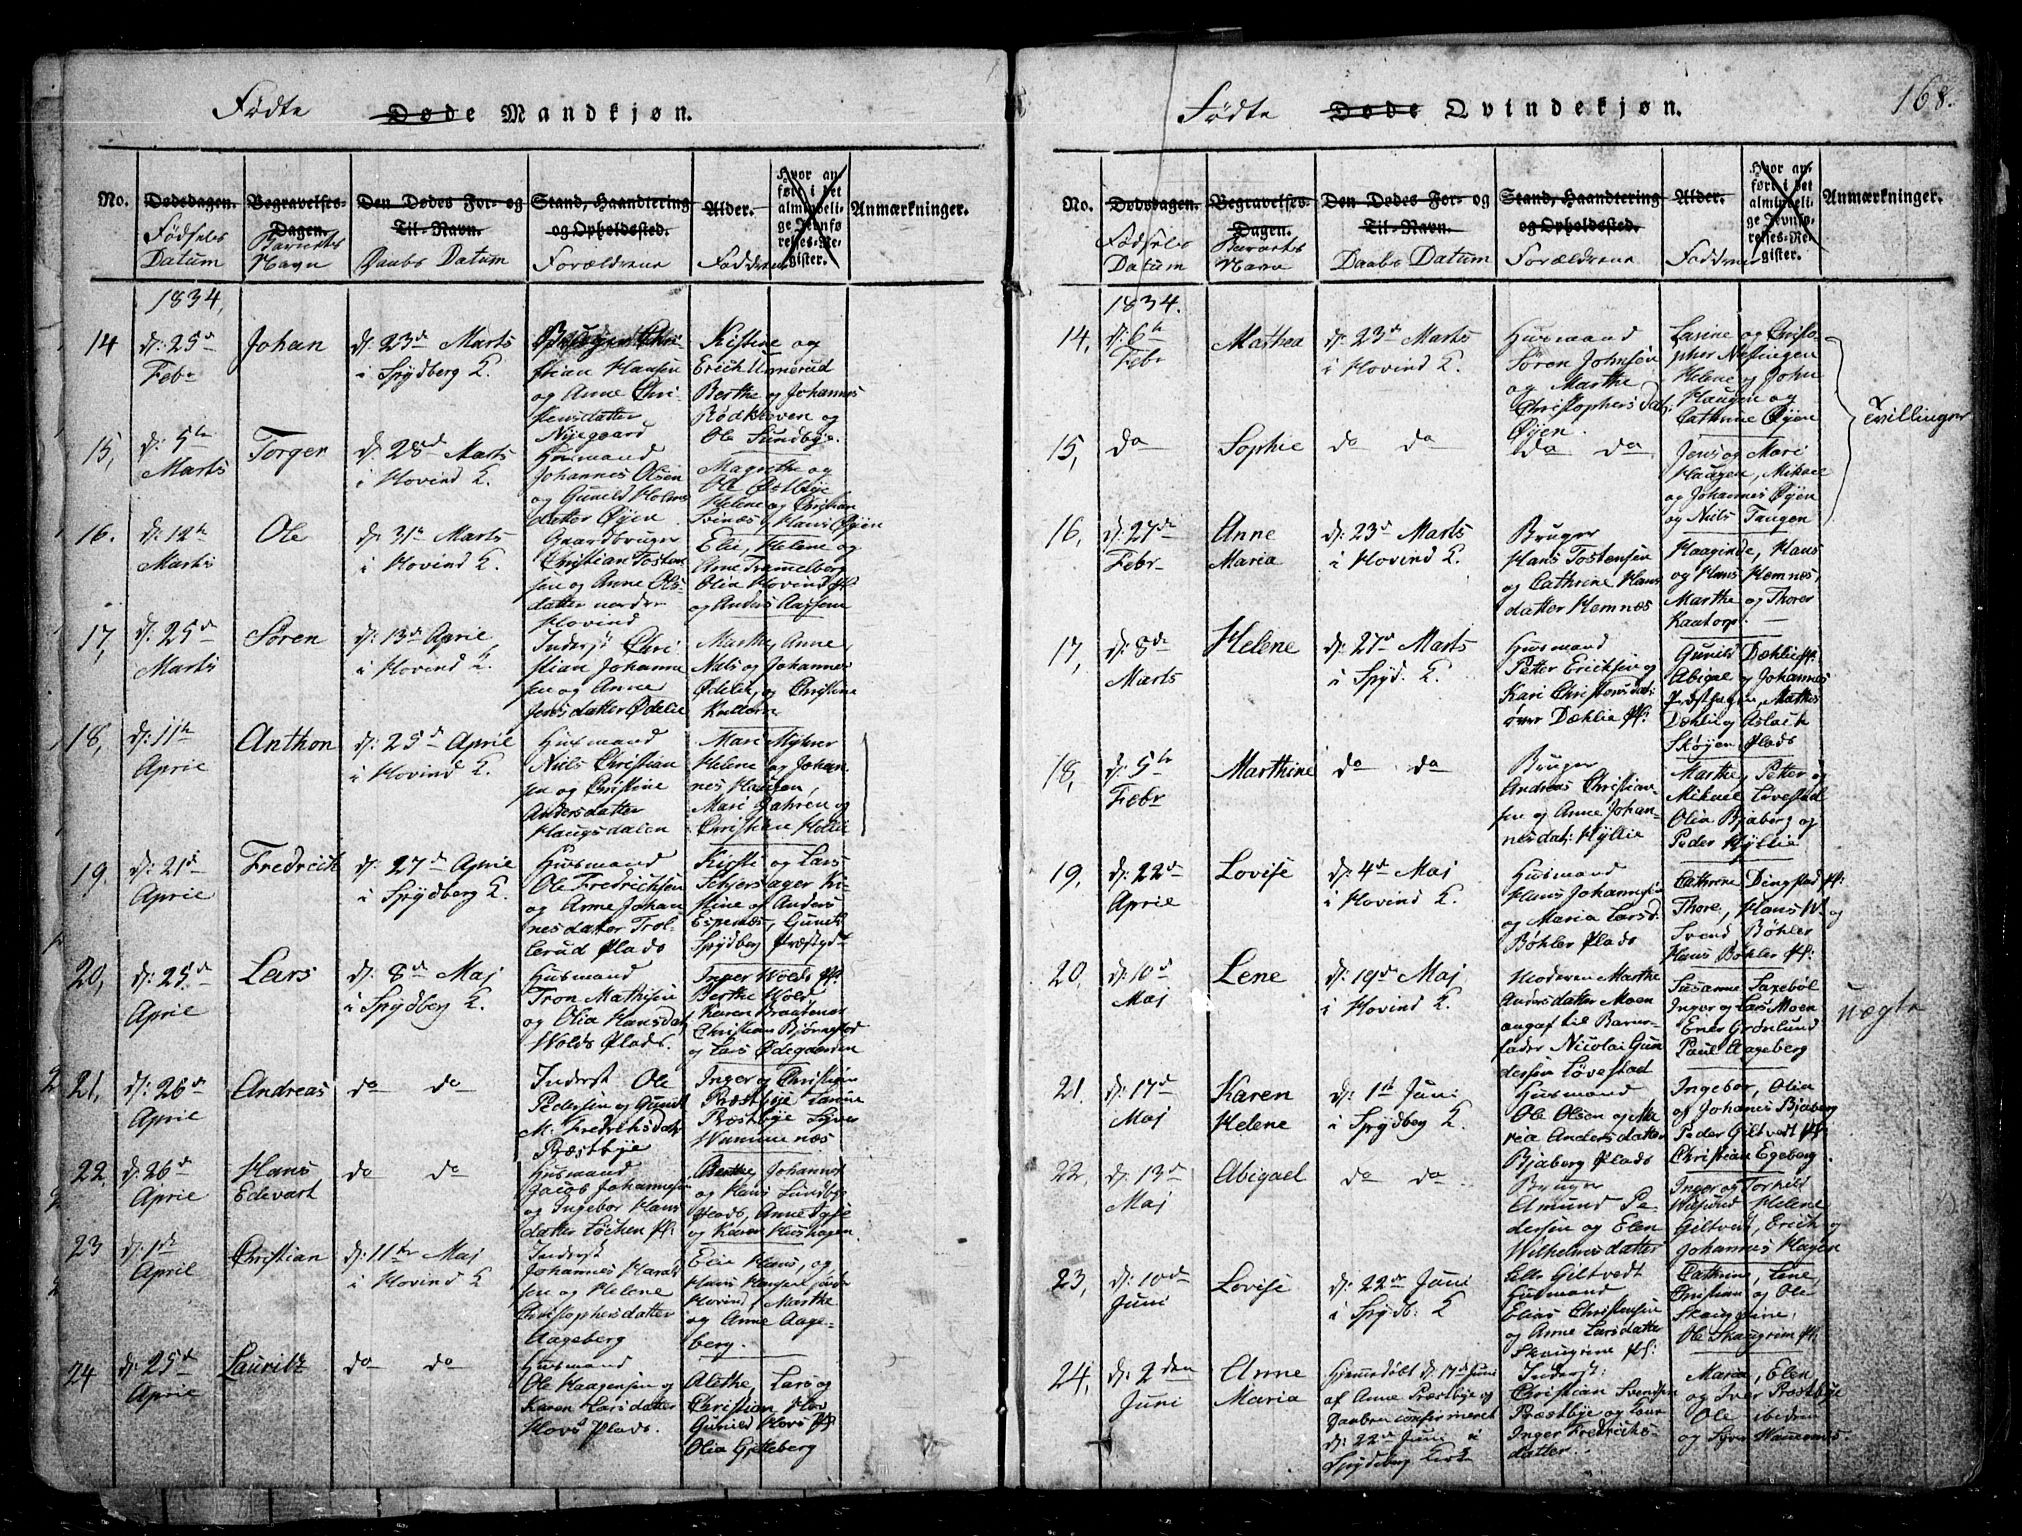 Fødte Døde Mandkjøn.
No. Dødsdagen. Begravelses-Dagen. Den Dødes For- og Til-Navn. Stand, Haandtering og Opholdssted. Alder. Hvor anført i det almindelige Jevnførelses-Register. Anmærkninger.
Fødsels Datum Barnets Navn Daabs Datum Forældrene Faddrene
1834.
14 d: 25d Febr
Johan
d: 23d Marts
i Spydberg K.
Christian Hansen
og Anne Christensdatter
Nyegaard
Kistine og
Erich Unnerud
Berthe og Johannes
Rødkleven og
Ole Sundbye.
15, d: 5te Marts
Torger
d: 28d Marts
i Hovind K.
Huusmand
Johannes Olsen
og Gunild Holmsdatter
Øyen
Magrethe og
Ole Østbye
Helene og Christian
Svinæs, Hans Øyen
16. d: 12te Marts
Ole
d: 31te Marts
i Hovind K.
Gaardbruger
Christian Tostensen
og Anne Olsdatter
nordre
Hovind
Elie, Helene og
Arne Trammelborg
Olia Hovind pl:
og Anders Aassen
17, d: 25d Marts
Søren
d: 13d Aprie
i Hovind K.
Inderst Christian
Johannesen
og Anne
Jensdatter Ødelie
Marthe, Anne
Niels og Johannes
Ødelie, og Christine
18, d: 11te Aprie
Anthon
d: 25d Aprie
i Hovind K.
Huusmand
Niels Christiansen
og Christine
Andersdatter
Haugsdalen
Mari Myhrer
Helene og Johannes
Haugen,
Mari Jahren og
Christian Hollie
19. d: 21d Aprie
Fredrich
d: 27d Aprie
i Spydberg K.
Huusmand
Ole Fredrichsen
og Anne Johannesdatter
Trollerud
Plads
Kisti og Lars
Schjersager Kistine
og Anders
Espenæs, Gunild
Spydberg Præstgd
20, d: 25d Aprie
Lars
d: 8d Maj
i Spydberg K.
Huusmand
Tron Mathisen
og Olia Hansdat:
Wolds Plads.
Inger Wolds pl:
Berthe Wold
Karen Braatener
Christian Bjørnstad
og Lars Ødegaarden
21, d: 26d Aprie
Andreas
do do
Inderst Ole
Pedersen og Gunil
M. Fredriksdatter
Præstbye
Inger og Christian
Præstbye Larine
Præstbye Syver
Wammenæs
22. d: 26d Aprie
Hans
Edevart
do do
Huusmand
Jacob Johannesen
og Ingebor Hansdatter
Løchen pl:
Berthe, Johannes
og Hans Lundbye
Plads, Anne Lysæ
og Karen Huushagen.
23 d: 1de Aprie
Christian
d: 11te Maj
i Hovind K
Inderst
Johannes Haraldsen
og Helene
Christophersdatter
Aageberg
Elie Hans, og
Hans Hansen søndre
Hovind, Marthe
og Anne Aageberg.
24 d: 25d Aprie
Lauritz
do do
Huusmand
Ole Haagensen og
Karen Larsdatter
Hovs Plads.
Alethe, Lars og
Christian Hov
Gunild Hovs pl:
Olia Gjetleberg
168.
Fødte Døde Qvindekjøn.
No. Dødsdagen. Begravelses-Dagen. Den Dødes For- og Til-Navn. Stand, Haandtering og Opholdssted. Alder. Hvor anført i det almindelige Jevnførelses-Register. Anmærkninger.
Fødsels Datum Barnets Navn Daabs Datum Forældrene Faddrene
1834.
14, d: 6te Febr
Mathea
d: 23d Marts
i Hovind K.
Huusmand
Søren Johnsen
og Marthe
Christophersdat:
Øyen.
Larine og Christopher
Næssingen
Helene og John
Haugen og
Cathrine Øyen
Tvillinger
15, do
Sophie
do do
do do
Jens og Mari
Haugen, Mikael
og Johannes Øyen
og Niels Tangen
16, d: 27de Febr
Anne
Maria
d: 23d Marts
i Hovind K.
Bruger
Hans Tostensen
og Cathrine Hansdatter
Hemnæs
Haaginde, Hans
og Hans Hemnæs,
Marthe og Thorer
Kaatorp.
17, d: 8de Marts
Helene
d: 27d Marts
i Spyd. K.
Huusmand
Petter Erichsen og
Kari Christensdat:
over Dæhlie pl:
Gunild Dæhlie pl:
Abigae og Johannes
Præsthagen, Mathis
Dæhli og Aslach
Skøyen Plads
18, d: 5te Febr
Marthine
do do
Bruger
Andreas Christiansen
og Anne Johannesdat:
Hyllie
Marthe, Petter og
Mikael Løvestad
Olia Bjaberg og
Peder Hyllie
19, d: 22d Aprie
Lovise
d: 4d Maj
i Hovind K.
Huusmand
Hans Johannesen
og Maria Larsd.
Bøhler Plads
Cathrine Dingstad pl:
Thore, Hans W. og
Svend Bøhler
Hans Bøhler pl:
20, d: 10d Maj
Lene
d: 19d Maj
i Hovind K.
Moderen Marthe
Andersdatter Moen
angaf til Barnefader
Nicolai Gundersen
Løvestad
Susanne Laxebøl
Inger og Lars Moen
Ener Grønlund
Paul Aageberg
Uægte
21. d: 17d Maj
Karen
Helene
d: 1st Juni
i Spydberg K.
Huusmand
Ole Olsen og Maria
Andersdatter
Bjaberg Plads
Ingebor, Olia
og Johanes Bjaberg
Peder Giltvedt pl:
Christian Egeberg.
22, d: 13d Maj
Abigael
do do
Bruger
Elmund Pedersen
og Elen
Wilhelmsdatter
Elle Giltvedt
Inger og Torkild
Wilsund Helene
Giltvedt, Erich og
Johannes Hagen
23, d: 10d Juni
Lovise
d: 22d Juni
i Spydb: K
Huusmand
Elias Christensen
og Anne Larsdatter
Skaugrine pl:
Cathrine, Lene
Christian og Ole
Skaugrine,
Ole Skaugrim pl:
24, d: 2den Juni
Anne
Maria
hjemmedøbt d: 17d Juni
af Anne Præstbye og
Daaben confirmeret
d: 22d Juni i
Spydeberg Kirke
Inderst:
Christian Svendsen
Præstbye og Kone
Inger Fredrichsdatter.
Maria, Elen
og Iver Præstbye
Ole ibidem
og Syver Wammenæs